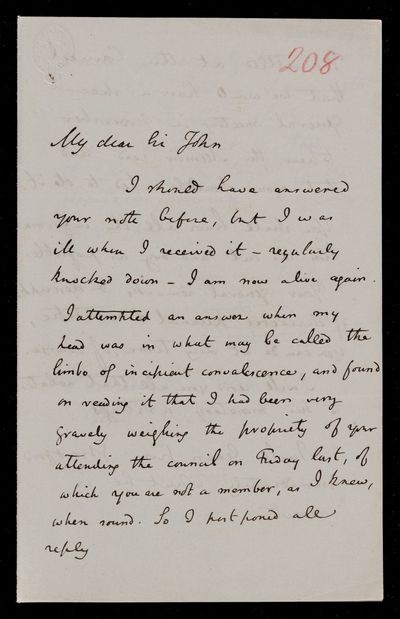 208
My dear Sir John
I should have answered
your note before, but I was
ill when I received it - regularly
knocked down - I am now alive again.
I attempted an answer when my
head was in what may be called the
limbo of incipient convalescence, and found
on reading it that I had been very
gravely weighing the propriety of your
attending the council on Friday last, of
which you are not a member, as I knew,
when sound. So I postponed all
reply